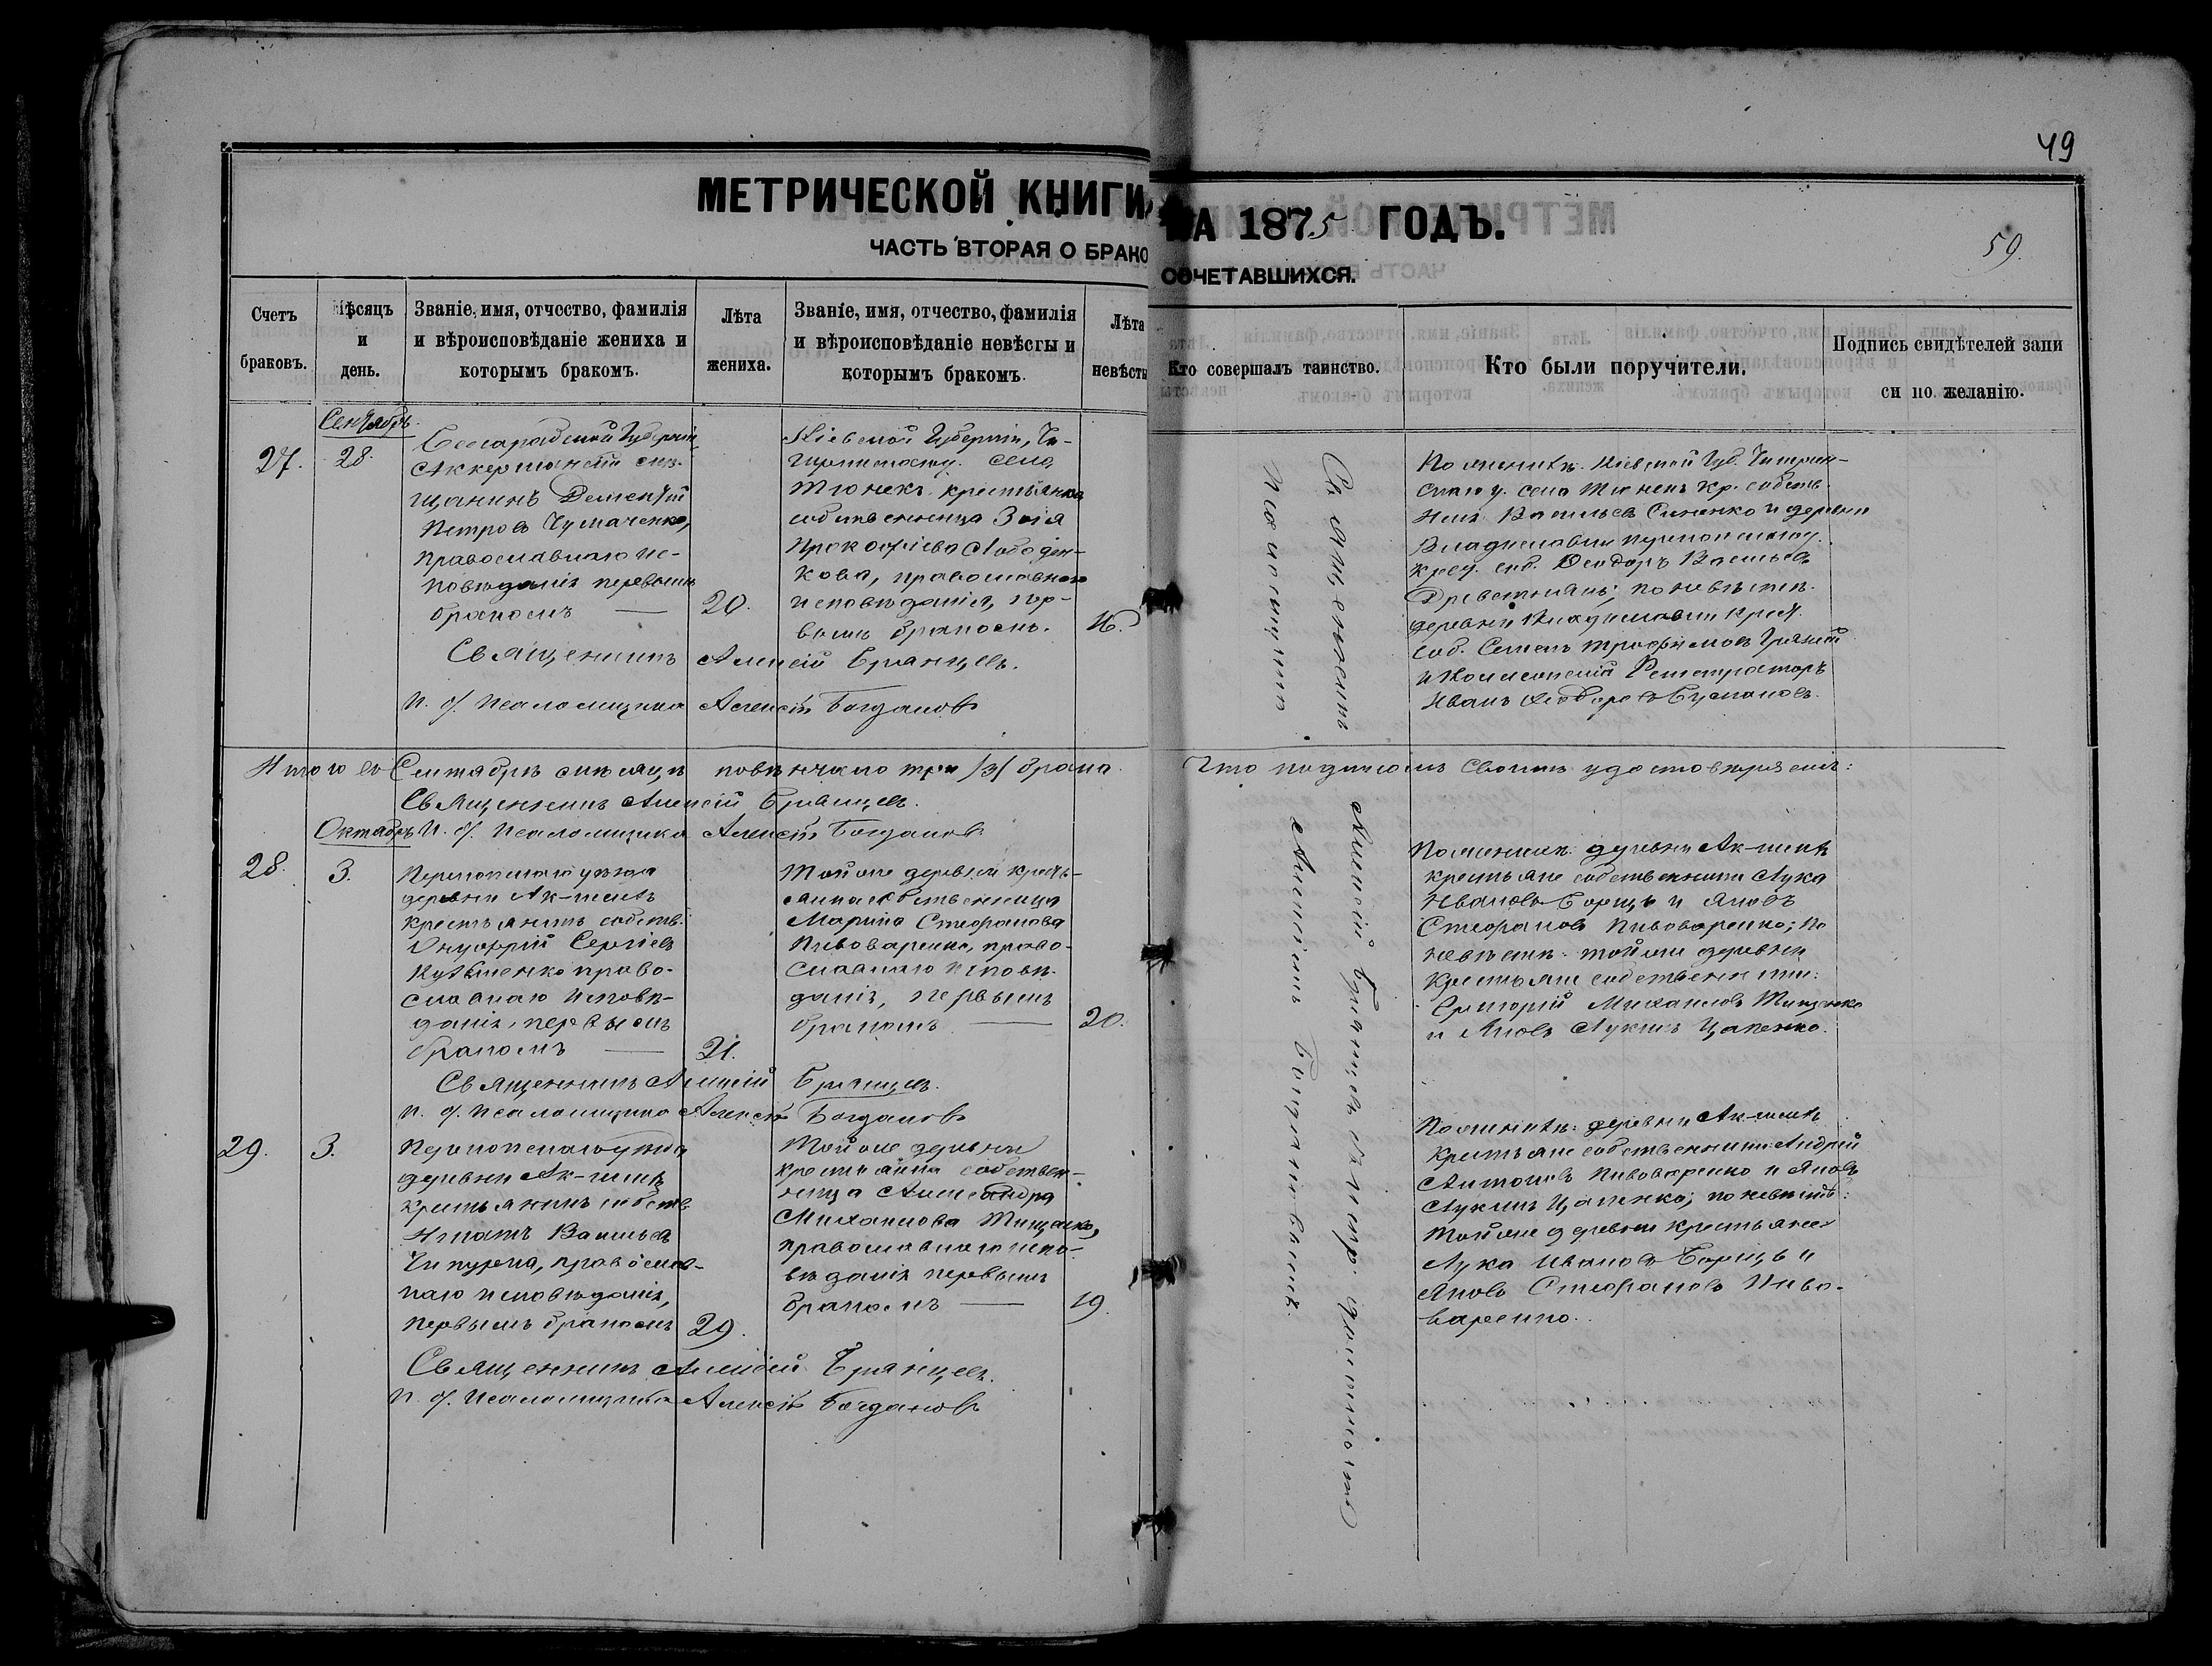 49
МЕТРИЧЕСКОЙ КНИГИ НА 1875 ГОДЪ.
59.
ЧАСТЬ ВТОРАЯ О БРАКОСОЧЕТАВШИХСЯ.
Счетъ браковъ.
Мѣсяцъ и день.
Званіе, имя, отчество, фамилія и вѣроисповѣданіе жениха и которымъ бракомъ.
Лѣта жениха.
Званіе, имя, отчество, фамилія и вѣроисповѣданіе невѣсты и которымъ бракомъ.
Лѣта невѣсты
Кто совершалъ таинство.
Кто были поручители.
Подпись свидѣтелей записи по желанію.
Сентябрь.
27.
28.
Бессарабской Губерніи,
Аккерманскій мѣ-
щанинъ Дементій
Петровъ Чумаченко,
православнаго ис-
повѣданія первымъ
бракомъ
20.
Кіевской Губерніи, Чи-
гиринскаго у. села
Тюнекъ крестьянка
собственница Зоія
Прокофіева Лободен-
кова, православнаго
исповѣданія, пер-
вымъ бракомъ.
16.
Священникъ
Псаломщикъ
По женихѣ: Кіевской Губ. Чигирин-
скаго у. села Тюнекъ кр. собств.
Васильевъ Синенко и деревни
Владиславки Перекопскаго у.
крес. соб. Ѳеодоръ Васильевъ
по невѣстѣ:
деревни Владиславки крест.
соб. Семенъ Трофимовъ
и Коллежскій Регистраторъ
Иванъ
Священникъ Алексій Брянцевъ.
И. д. Псаломщика Алексѣй Богдановъ
Итого въ Сентябрѣ мѣсяцѣ повѣнчано три /3/ брака. Что подписомъ своимъ удостовѣряемъ:
Священникъ Алексій Брянцевъ.
Октябрь
И. д. Псаломщика Алексѣй Богдановъ
28.
3.
Перекопскаго уѣзда
деревни Ак-шеихъ
крестьянинъ собств.
Онуфрій Сергіевъ
Кузьменко право-
славнаго исповѣ-
данія, первымъ
бракомъ
21.
Той же деревни кресть-
янка собственница
Марина Стефанова
Пивоваренко, право-
славнаго исповѣ-
данія, первымъ
бракомъ
20.
Алексій Брянцевъ
Алексѣй Богдановъ
По женихѣ: деревни Ак-шеихъ
крестьяне собственники Лука
Ивановъ Борщъ и Яковъ
Стефановъ Пивоваренко; по
невѣстѣ: той же деревни
крестьяне собственники:
Григорій Михаиловъ Тищенко
и Яковъ Лукинъ Цапенко.
Священникъ Алексій Брянцевъ.
И. д. Псаломщика Алексѣй Богдановъ
29.
3.
Перекопскаго уѣзда
деревни Ак-шеихъ
крестьянинъ собств.
Игнатъ Васильевъ
Чипурка, православ-
наго исповѣданія,
первымъ бракомъ
29.
Той же деревни
крестьянка собствен-
ница Александра
Михаилова Тищенко,
православнаго испо-
вѣданія первымъ
бракомъ
19.
По женихѣ: деревни Ак-шеихъ
крестьяне собственники: Андрей
Антоновъ Пивоваренко и Яковъ
Лукинъ Цапенко; по невѣстѣ:
той же деревни крестьяне
Лука Ивановъ Борщъ и
Яковъ Стефановъ Пиво-
варенко.
Священникъ Алексій Брянцевъ.
И. д. Псаломщика Алексѣй Богдановъ